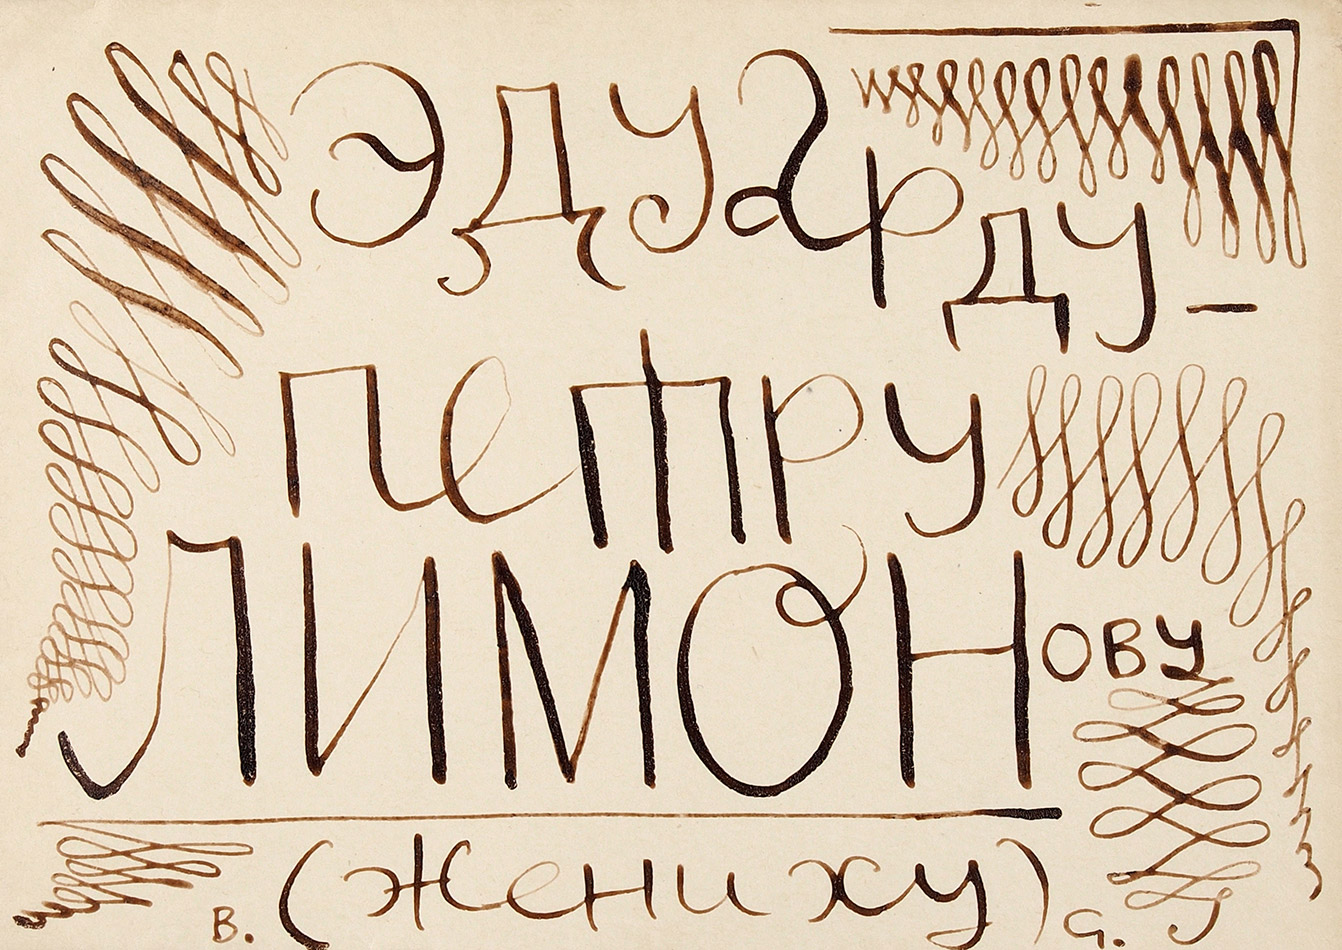 Эдуарду –
петру
Лимонову
(жениху)
В. G.